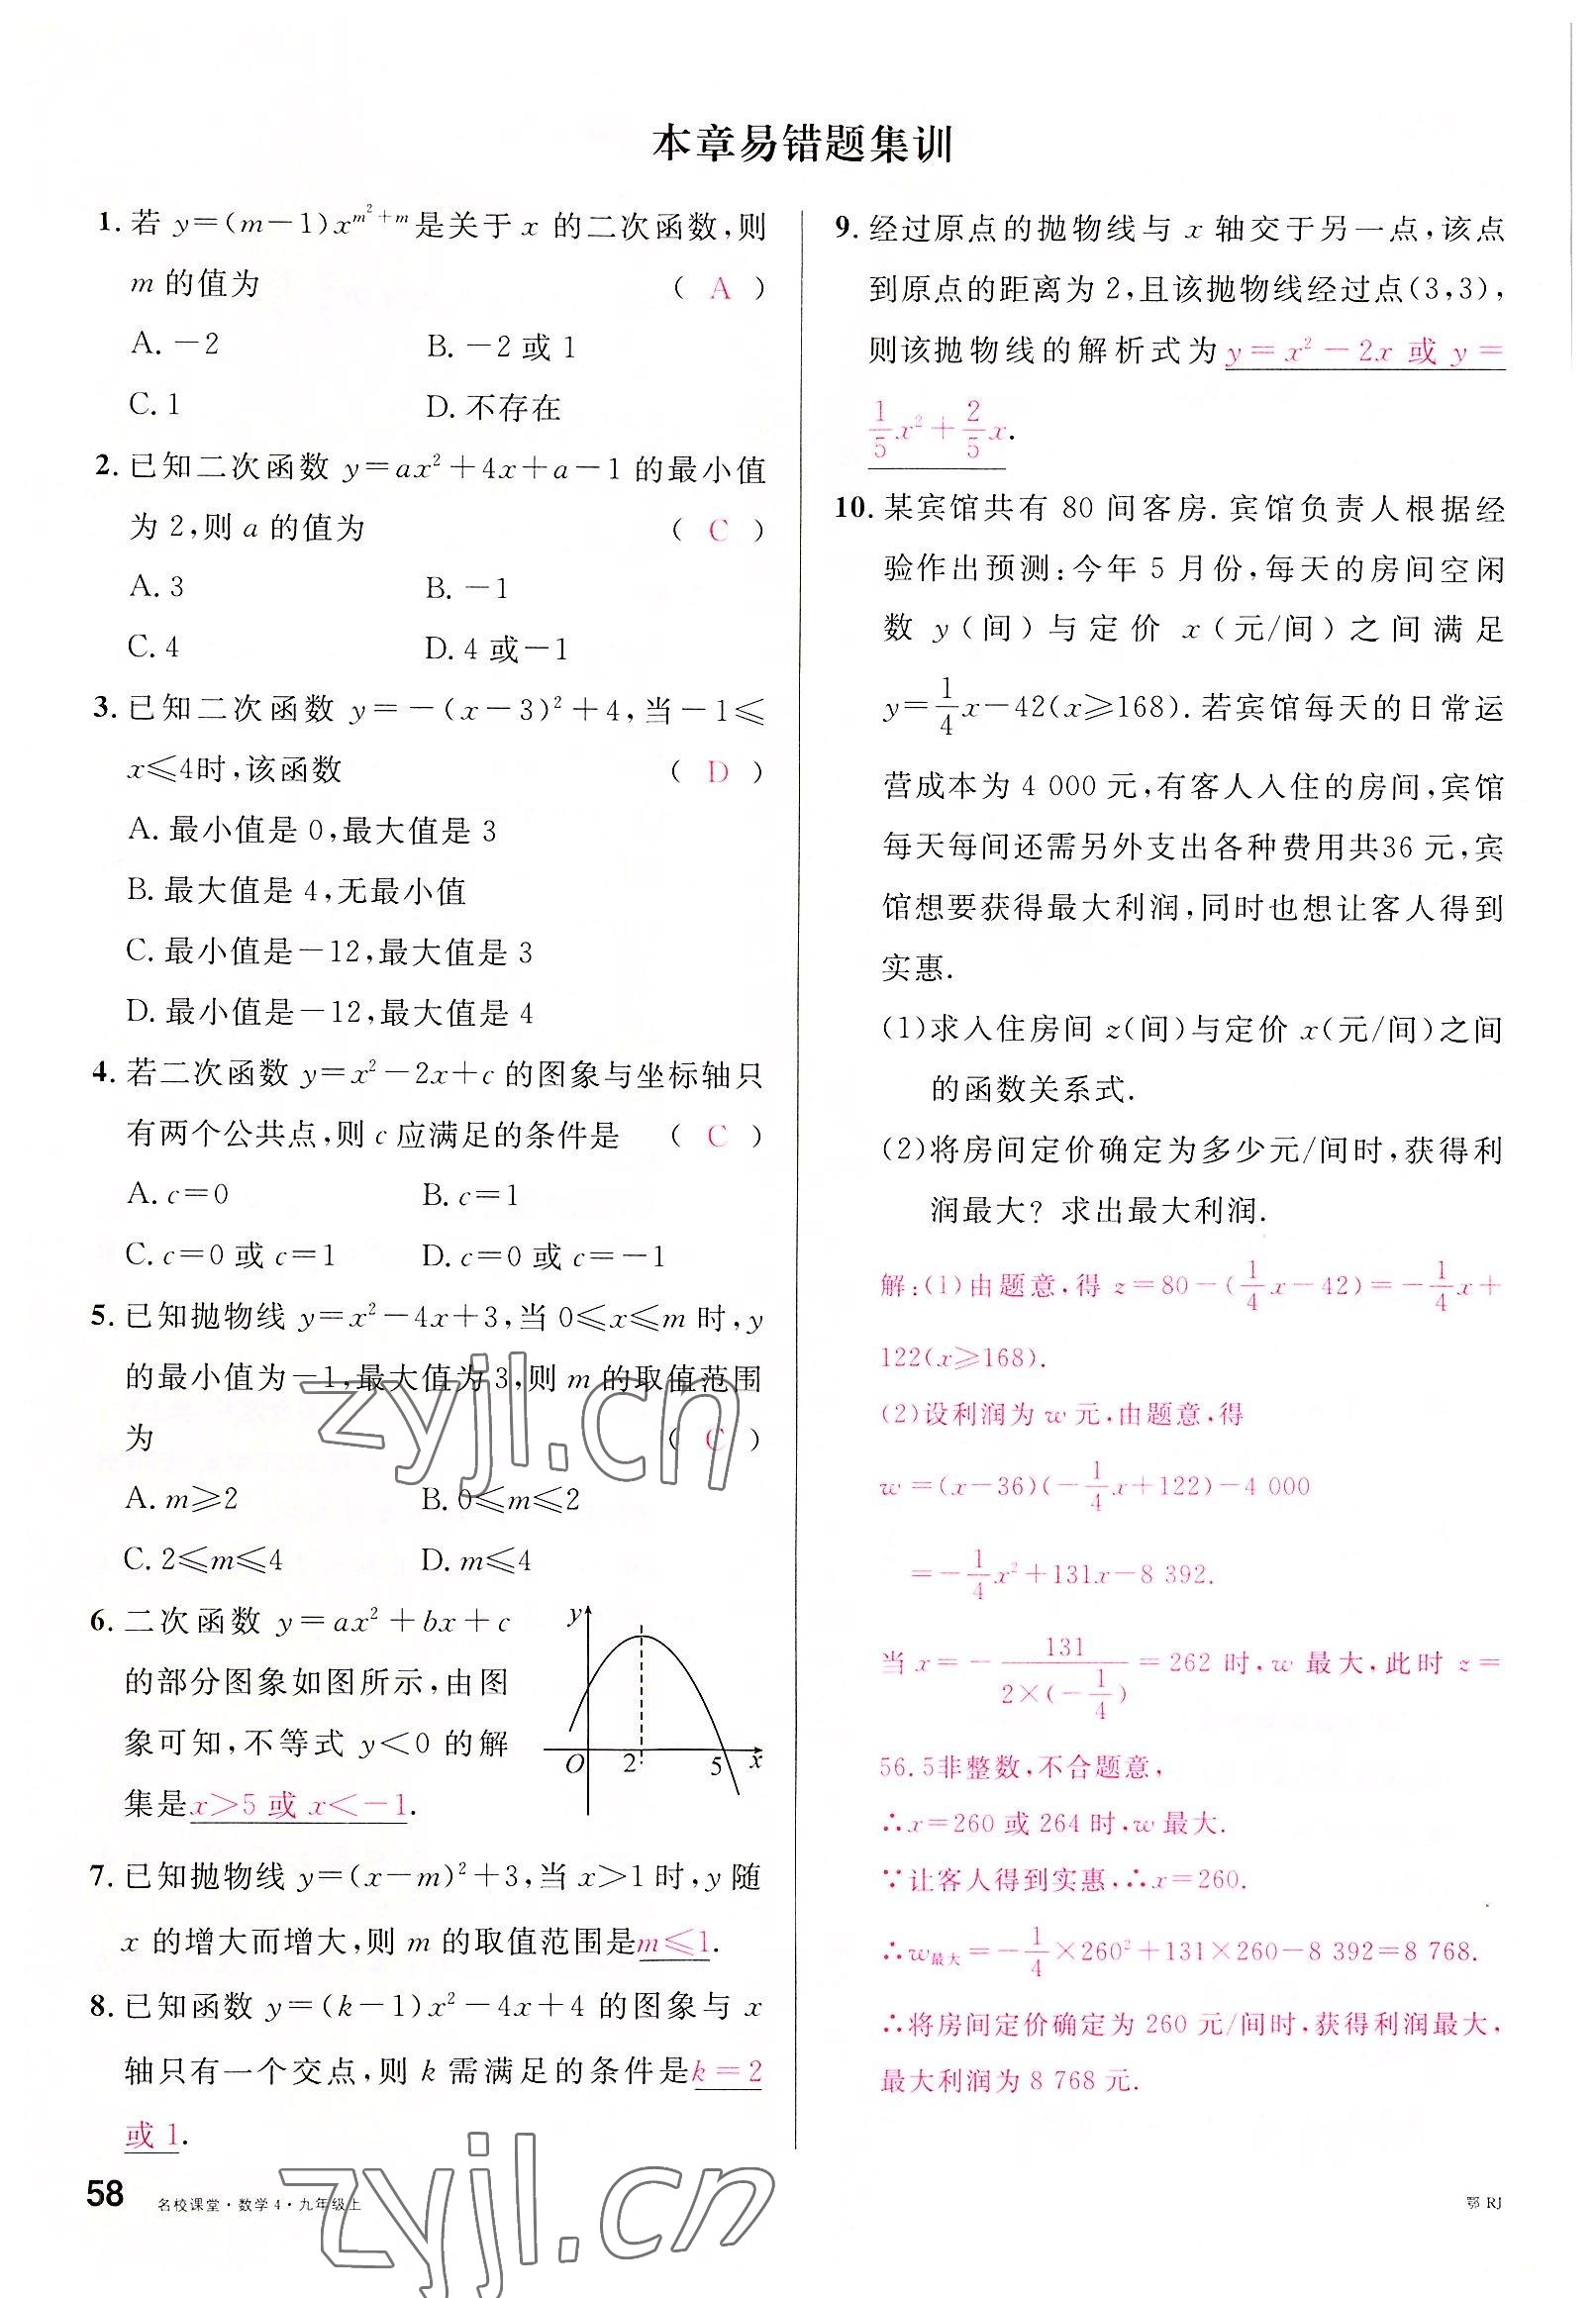 本章易错题集训
1. 若 y=(m-1)x^{m²+m}是关于 x 的二次函数,则
m 的值为 ( A )
A. -2 B. -2 或 1
C. 1 D. 不存在
2. 已知二次函数 y=ax²+4x+a-1 的最小值
为 2,则 a 的值为 ( C )
A. 3 B. -1
C. 4 D. 4 或-1
3. 已知二次函数 y=-(x-3)²+4,当-1≤
x≤4时,该函数 ( D )
A. 最小值是 0,最大值是 3
B. 最大值是 4,无最小值
C. 最小值是-12,最大值是 3
D. 最小值是-12,最大值是 4
4. 若二次函数 y=x²-2x+c 的图象与坐标轴只
有两个公共点,则 c 应满足的条件是 ( C )
A. c=0 B. c=1
C. c=0 或 c=1 D. c=0 或 c=-1
5. 已知抛物线 y=x²-4x+3,当 0≤x≤m 时,y
的最小值为-1,最大值为 3,则 m 的取值范围
为 ( C )
A. m≥2 B. 0≤m≤2
C. 2≤m≤4 D. m≤4
6. 二次函数 y=ax²+bx+c
的部分图象如图所示,由图
象可知,不等式 y<0 的解
集是x>5 或 x<-1.
y
O 2 5 x
7. 已知抛物线 y=(x-m)²+3,当 x>1 时,y 随
x 的增大而增大,则 m 的取值范围是m≤1.
8. 已知函数 y=(k-1)x²-4x+4 的图象与 x
轴只有一个交点,则 k 需满足的条件是k=2
或 1.
9. 经过原点的抛物线与 x 轴交于另一点,该点
到原点的距离为 2,且该抛物线经过点(3,3),
则该抛物线的解析式为y=x²-2x 或 y=
1/5x²+2/5x.
10. 某宾馆共有 80 间客房. 宾馆负责人根据经
验作出预测:今年 5 月份,每天的房间空闲
数 y(间)与定价 x(元/间)之间满足
y=1/4x-42(x≥168). 若宾馆每天的日常运
营成本为 4 000 元,有客人入住的房间,宾馆
每天每间还需另外支出各种费用共36 元,宾
馆想要获得最大利润,同时也想让客人得到
实惠.
(1)求入住房间 z(间)与定价 x(元/间)之间
的函数关系式.
(2)将房间定价确定为多少元/间时,获得利
润最大? 求出最大利润.
解:(1)由题意,得 z=80-(1/4x-42)=-1/4x+
122(x≥168).
(2)设利润为 w 元,由题意,得
w=(x-36)(-1/4x+122)-4 000
=-1/4x²+131x-8 392.
当 x=-131/(2×(-1/4))=262 时,w 最大,此时 z=
56.5非整数,不合题意,
∴x=260 或 264 时,w 最大.
∵让客人得到实惠,∴x=260.
∴w最大=-1/4×260²+131×260-8 392=8 768.
∴将房间定价确定为 260 元/间时,获得利润最大,
最大利润为 8 768 元.
zyjl.cn
zyjl.cn
58 名校课堂·数学4·九年级上
鄂 RJ